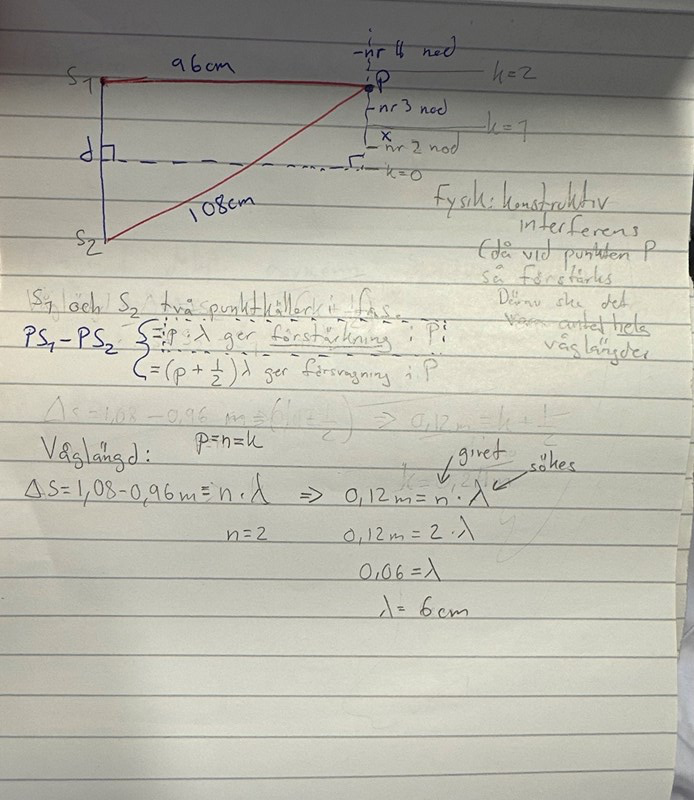 -nr 4 nod
96cm
k=2
S1
P
-nr 3 nod
k=1
x
d
-nr 2 nod
k=0
108cm
S2
Fysik: konstruktiv
interferens
(då vid punkten P
så förstärks
Därav ska det
vara antal hela
våglängder
S1 och S2 två punktkällor i fas.
PS1-PS2 {=p·λ ger förstärkning i P
=(p+1/2)λ ger försvagning i P
Δs=1,08-0,96 m = ⇒ 0,12m=k+1/2
Våglängd:
p=n=k
givet
sökes
Δs=1,08-0,96m=n·λ ⇒ 0,12m=n·λ
n=2
0,12m=2·λ
0,06=λ
λ=6cm